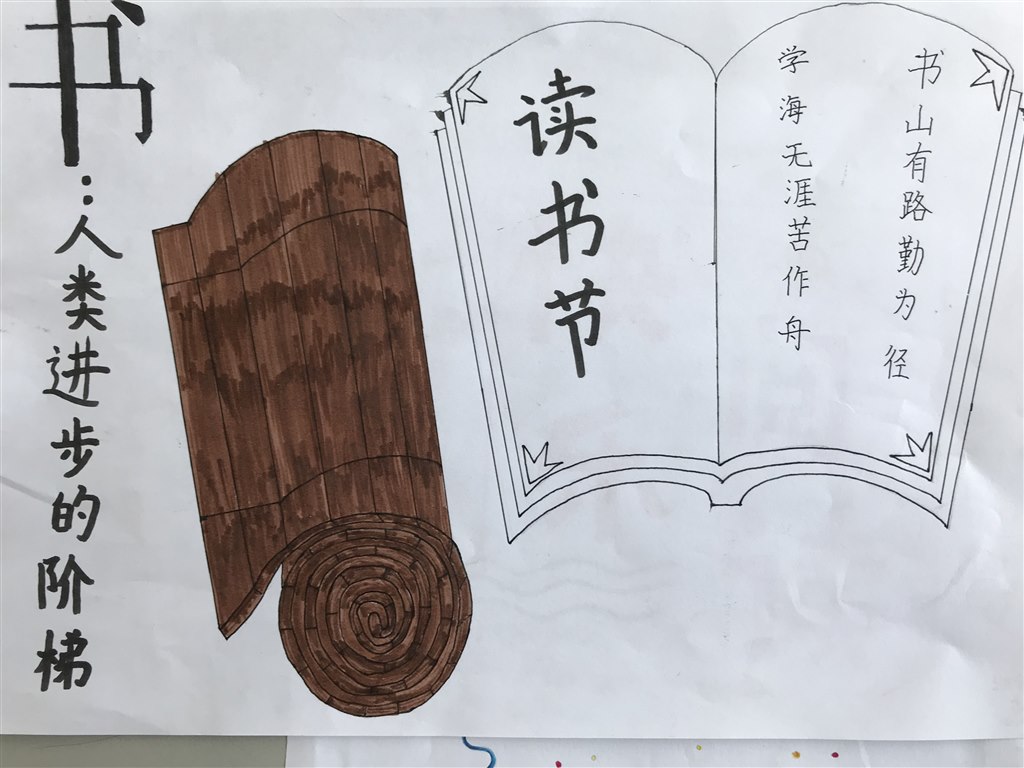 书:人类进步的阶梯
读书节
书山有路勤为径
学海无涯苦作舟